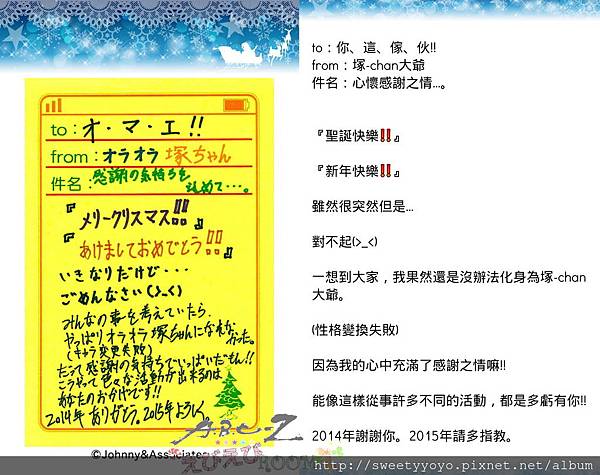 to：オ・マ・エ!!
from：オラオラ 塚ちゃん
件名：感謝の気持ちを
込めて・・・。
『メリークリスマス!!』
『あけましておめでとう!!』
いきなりだけど・・・
ごめんなさい(>_<)
みんなの事を考えていたら、
やっぱりオラオラ塚ちゃんになれなかった。
(キャラ変更失敗)
だって感謝の気持ちでいっぱいだもん!!
こうやって色々な活動が出来るのは
あなたのおかげです!!
2014年ありがとう。2015年よろしく。
A.B.C-Z
えびえびROOM
©Johnny&Associates
to：你、這、傢、伙!!
from：塚-chan大爺
件名：心懷感謝之情...。
『聖誕快樂‼』
『新年快樂‼』
雖然很突然但是...
對不起(>_<)
一想到大家，我果然還是沒辦法化身為塚-chan
大爺。
(性格變換失敗)
因為我的心中充滿了感謝之情嘛!!
能像這樣從事許多不同的活動，都是多虧有你!!
2014年謝謝你。2015年請多指教。
http://sweetyyoyo.pixnet.net/album